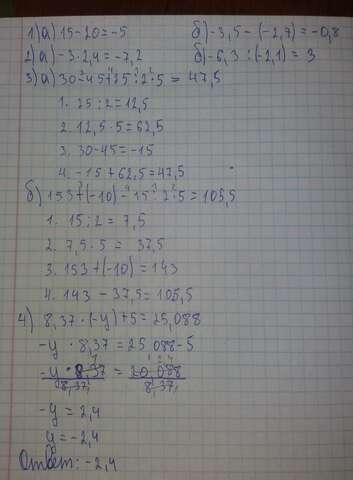 1) а) 15-20=-5 б) -3,5-(-2,7)=-0,8
2) а) -3·2,4=-7,2 б) -6,3:(-2,1)=3
3) а) 30-45+25:2·5=47,5
1. 25:2=12,5
2. 12,5·5=62,5
3. 30-45=-15
4. -15+62,5=47,5
б) 153+(-10)-15:2·5=105,5
1. 15:2=7,5
2. 7,5·5=37,5
3. 153+(-10)=143
4. 143-37,5=105,5
4) 8,37·(-y)+5=25,088
-y·8,37=25,088-5
-y·8,37/8,37=20,088/8,37
-y=2,4
y=-2,4
Ответ:-2,4